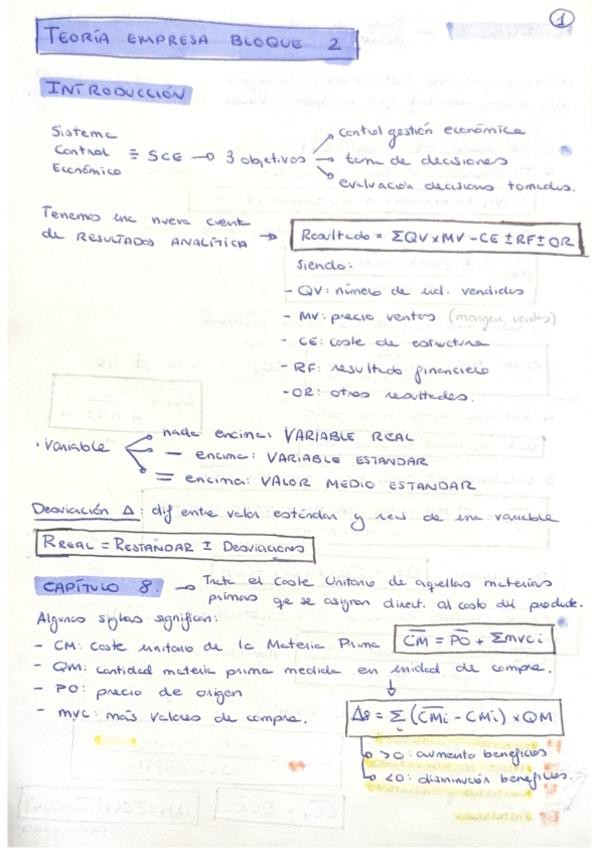 1
TEORÍA EMPRESA BLOQUE 2
INTRODUCCIÓN
Sistema
Control ≡ SCE → 3 objetivos
Económico
control gestión económica
toma de decisiones
evaluación decisiones tomadas.
Tenemos una nueva cuenta
de RESULTADOS ANALÍTICA → Resultado = ΣQV×MV - CE ± RF ± OR
siendo:
- QV: número de ud. vendidas
- MV: precio ventas (margen, ventas)
- CE: coste de estructura
- RF: resultado financiero
- OR: otros resultados.
· Variable
nada encima: VARIABLE REAL
— encima: VARIABLE ESTANDAR
= encima: VALOR MEDIO ESTANDAR
Desviación Δ: dif entre valor estándar y real de una variable
RREAL = RESTANDAR ± Desviaciones
CAPÍTULO 8. → Trata el Coste Unitario de aquellas materias
primas que se asignan direct. al costo del producto.
Algunas siglas significan:
- CM: Coste unitario de la Materia Prima C̅M̅ = P̅O̅ + Σmvci
- QM: cantidad materia prima medida en unidad de compra.
- PO: precio de origen
- mvc: más valores de compra.
Δ8 = Σi (C̅M̅i - CMi) × QM
>0: aumento beneficios
<0: disminución beneficios.